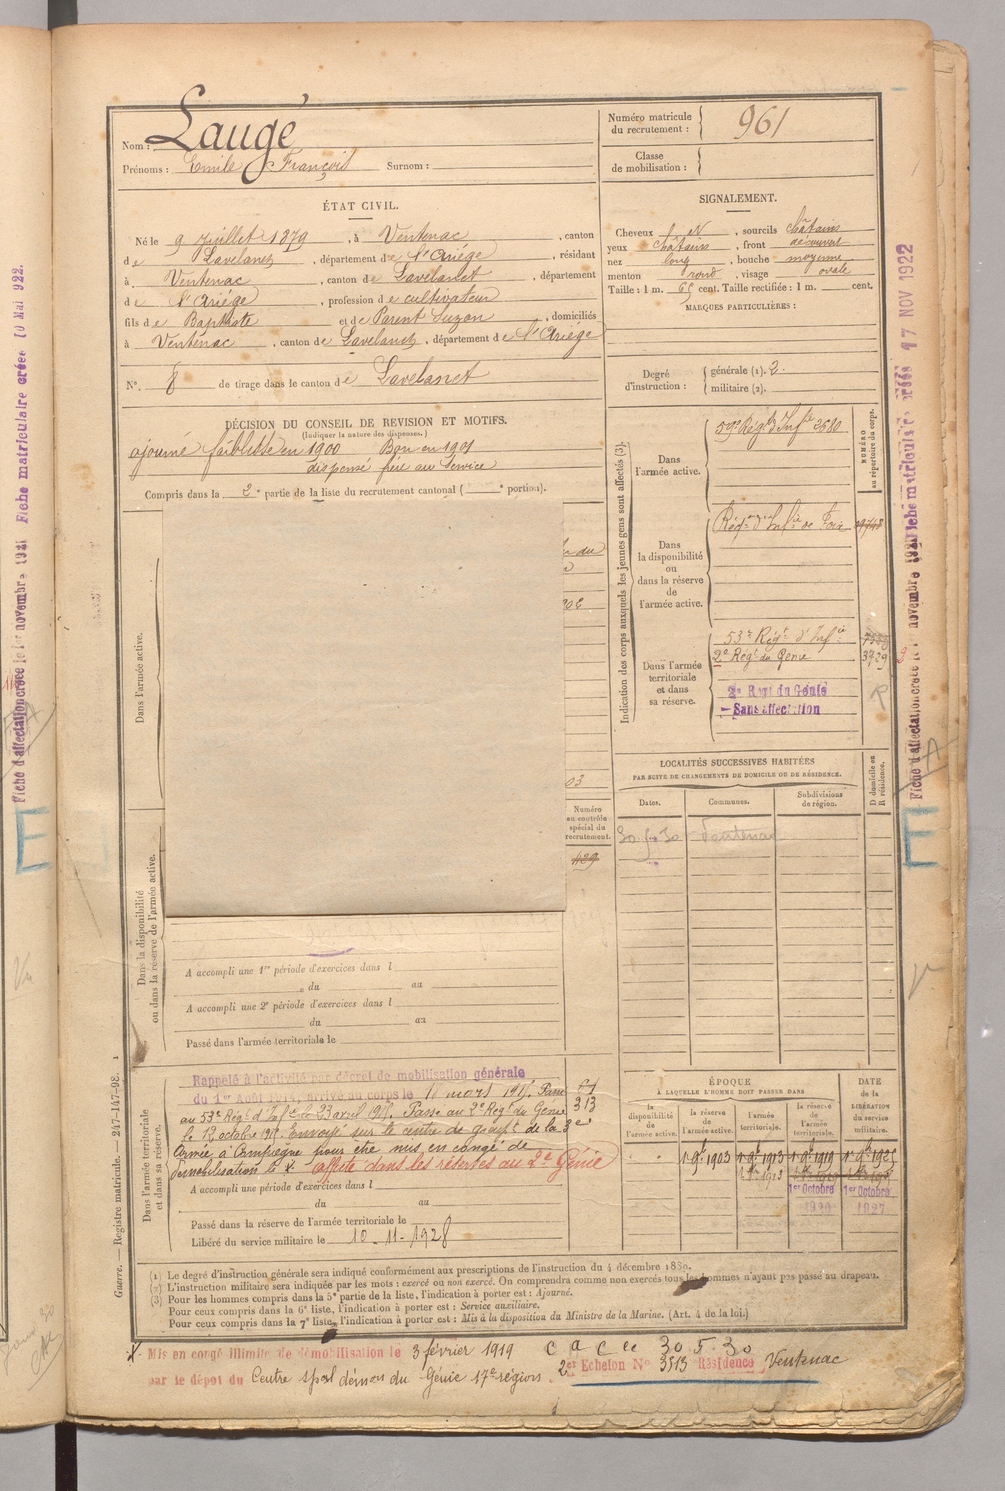 Nom : Laugé
Prénoms : Emile François Surnom :
Numéro matricule du recrutement : 961
Classe de mobilisation :
ÉTAT CIVIL.
Né le 9 Juillet 1879, à Ventenac, canton
de Lavelanet, département de l'Ariége, résidant
à Ventenac, canton de Lavelanet, département
de l'Ariége, profession de cultivateur
fils de Baptiste et de Parent Suzon, domiciliés
à Ventenac, canton de Lavelanet, département de l'Ariége
N°. 8 de tirage dans le canton de Lavelanet
SIGNALEMENT.
Cheveux et N, sourcils châtains
yeux châtain, front découvert
nez long, bouche moyenne
menton rond, visage ovale
Taille : 1 m. 65 cent. Taille rectifiée : 1 m. cent.
MARQUES PARTICULIÈRES :
Degré d'instruction : générale (1). 2.
militaire (2).
DÉCISION DU CONSEIL DE REVISION ET MOTIFS.
(Indiquer la nature des dispenses.)
ajourné faiblesse en 1900 Bon en 1901
dispensé frère au Service
Compris dans la 2e partie de la liste du recrutement cantonal ( e portion).
Indication des corps auxquels les jeunes gens sont affectés (3).
NUMÉRO au répertoire du corps.
Dans l'armée active.
59e Régt d'Infie 2680
Dans la disponibilité ou dans la réserve de l'armée active.
Régt d'Infie de Foix
Dans l'armée territoriale et dans sa réserve.
53e Régt d'Infie
2e Régt du Génie 3729
2e Regt du Génie
Sans affectation
Dans l'armée active.
Numéro au contrôle spécial du recrutement.
439
Dans la disponibilité ou dans la réserve de l'armée active.
A accompli une 1re période d'exercices dans l
du au
A accompli une 2e période d'exercices dans l
du au
Passé dans l'armée territoriale le
LOCALITÉS SUCCESSIVES HABITÉES
PAR SUITE DE CHANGEMENTS DE DOMICILE OU DE RÉSIDENCE.
Dates. Communes. Subdivisions de région. D domicile ou R résidence.
30-5-30 Ventenac
Dans l'armée territoriale et dans sa réserve.
Rappelé à l'activité par décret de mobilisation générale
du 1er Août 1914, arrivé au corps le 11 mars 1915. Passé
au 53e Régt d'Infie le 23 avril 1915. Passé au 2e Régt du Génie
le 13 octobre 1915. Envoyé sur le centre de groupt de la 3e
Armée à Compiègne pour être mis en congé de
démobilisation le X. affecté dans les réserves au 2e Génie
313
A accompli une période d'exercices dans l
du au
Passé dans la réserve de l'armée territoriale le
Libéré du service militaire le 10-11-1928
ÉPOQUE
A LAQUELLE L'HOMME DOIT PASSER DANS
DATE de la LIBÉRATION du service militaire.
la disponibilité de l'armée active. la réserve de l'armée active. l'armée territoriale. la réserve de l'armée territoriale.
1 9bre 1903 1 9bre 1913 1 9bre 1919 1 9bre 1925
1er Octobre 1920 1er Octobre 1927
(1) Le degré d'instruction générale sera indiqué conformément aux prescriptions de l'instruction du 4 décembre 1889.
(2) L'instruction militaire sera indiquée par les mots : exercé ou non exercé. On comprendra comme non exercés tous les hommes n'ayant pas passé au drapeau.
(3) Pour les hommes compris dans la 5e partie de la liste, l'indication à porter est : Ajourné.
Pour ceux compris dans la 6e liste, l'indication à porter est : Service auxiliaire.
Pour ceux compris dans la 7e liste, l'indication à porter est : Mis à la disposition du Ministre de la Marine. (Art. 4 de la loi.)
X Mis en congé illimité de démobilisation le 3 février 1919
par le dépot du Centre spal démon du Génie 17e région
30.5.30
2e Echelon N° 3513 Résidence Ventenac
Guerre. — Registre matricule. — 247-147-98.
Fiche matriculaire créée 10 Mai 1922.
Fiche d'affectation créée le 1er novembre 1921
Fiche matriculaire créée 17 NOV 1922
Fiche d'affectation créée le 1er novembre 1921